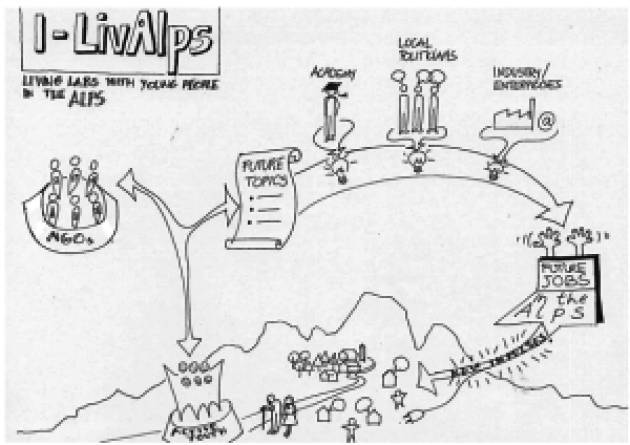 I-LivAlps
LIVING LABS WITH YOUNG PEOPLE
IN THE ALPS
ACADEMY
LOCAL
POLITICIANS
INDUSTRY/
ENTERPRISES
@
FUTURE
TOPICS
NGOs
FUTURE
JOBS
in the
Alps
NEW IMPULSES
ACTIVE YOUTH